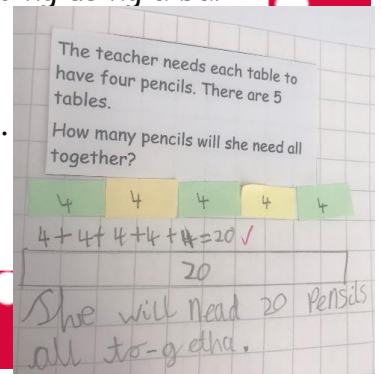 The teacher needs each table to
have four pencils. There are 5
tables.
How many pencils will she need all
together?
4 4 4 4 4
4+4+4+4+4=20 ✓
20
She will nead 20 Pensils
all to-getha.